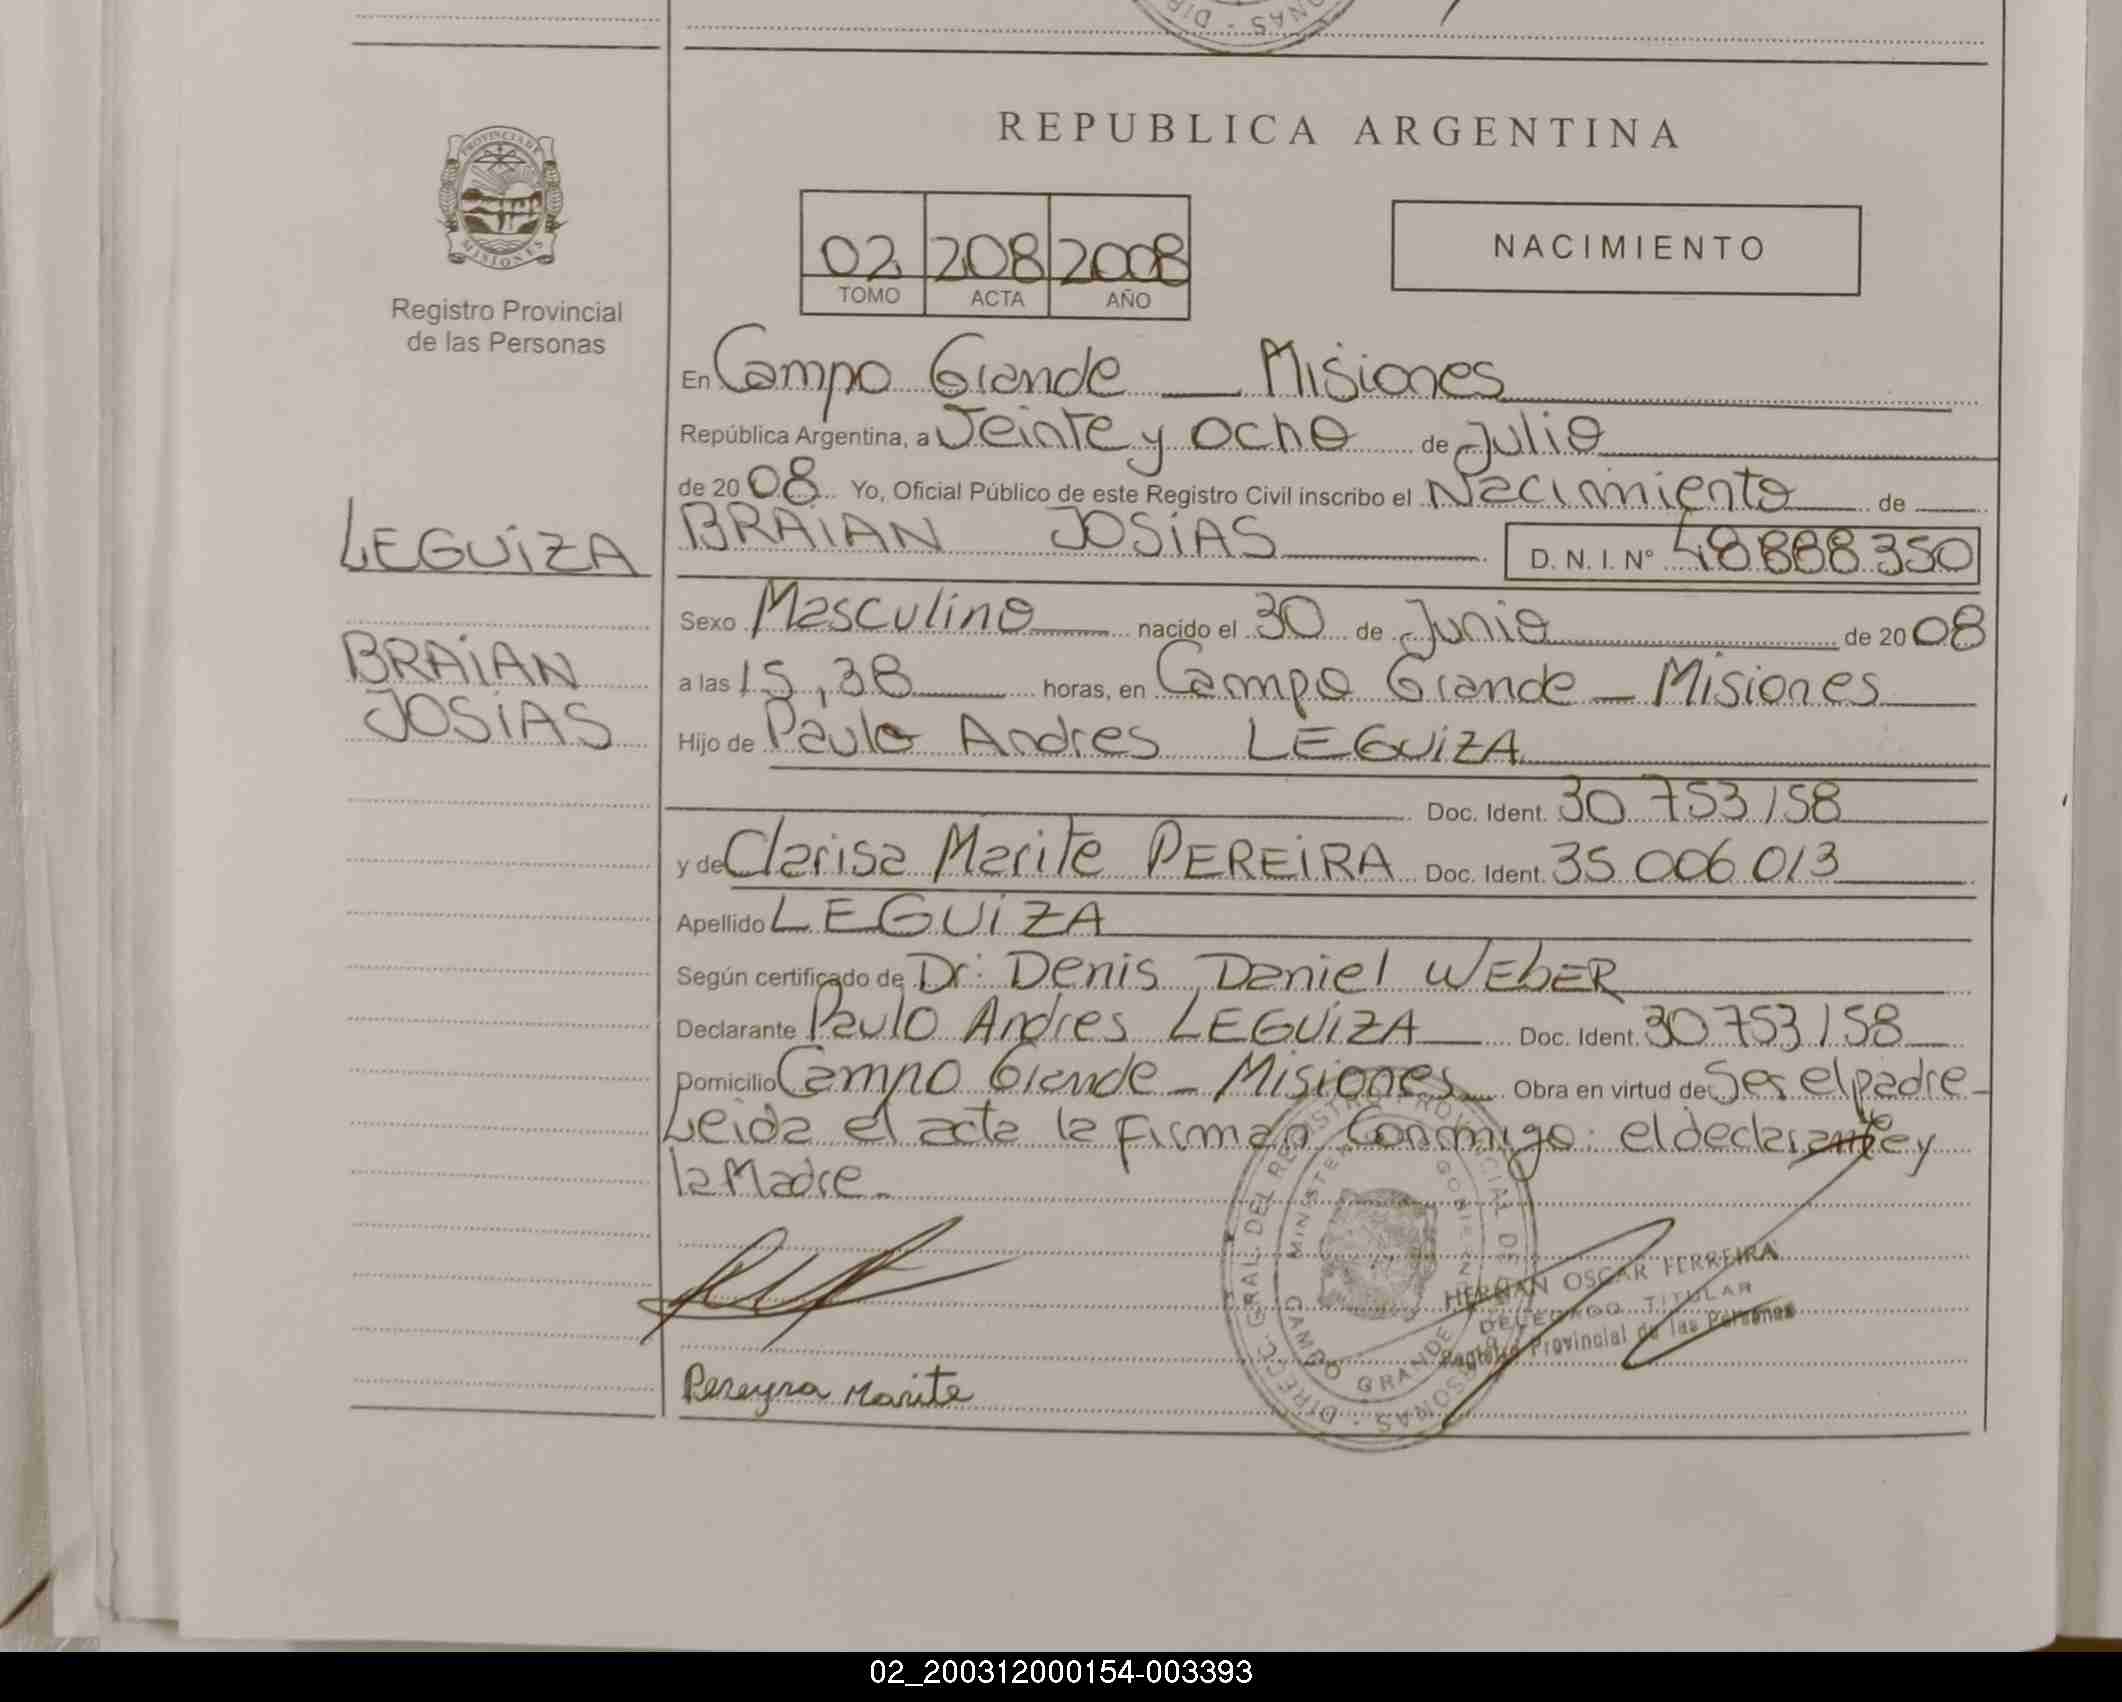 REPUBLICA ARGENTINA
PROVINCIA DE
MISIONES
Registro Provincial
de las Personas
02 208 2008
TOMO ACTA AÑO
NACIMIENTO
En Campo Grande — Misiones
República Argentina, a Veinte y ocho de Julio
de 2008 Yo, Oficial Público de este Registro Civil inscribo el Nacimiento de
LEGUiZA
BRAiAN JOSiAS D. N. I. Nº 48888350
Sexo Masculino nacido el 30 de Junio de 2008
BRAiAN
JOSiAS
a las 15,38 horas, en Campo Grande – Misiones
Hijo de Paulo Andres LEGUiZA
Doc. Ident. 30 753 158
y de Clarisa Marite PEREiRA Doc. Ident. 35 006 013
Apellido LEGUiZA
Según certificado de Dr: Denis Daniel WEbER
Declarante Paulo Andres LEGUiZA Doc. Ident. 30 753 158
Domicilio Campo Grande – Misiones Obra en virtud de Ser el padre –
Leida el acta la firman Conmigo: el declarante y
la Madre –
DIRECC. GRAL. DEL REGISTRO PROVINCIAL DE
CAMPO GRANDE
HERNAN OSCAR FERREIRA
DELEGADO TITULAR
Registro Provincial de las Personas
Pereyra Marite
02_200312000154-003393